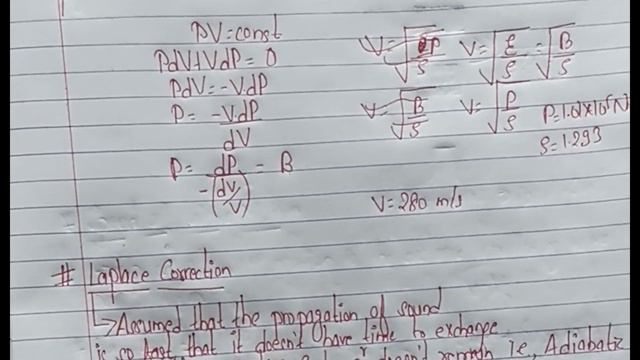 PV = const
PdV + VdP = 0
PdV = -VdP
P = -VdP/dV
P = dP/-(dV/V) = B
V = √(P/ρ) V = √(E/ρ) = √(B/ρ)
V = √(B/ρ) V = √(P/ρ) P = 1.01×10⁵N
ρ = 1.293
V = 280 m/s
# Laplace Correction
↳ Assumed that the propagation of sound
is so fast that it doesn't have time to exchange
doesn't remain i.e. Adiabatic